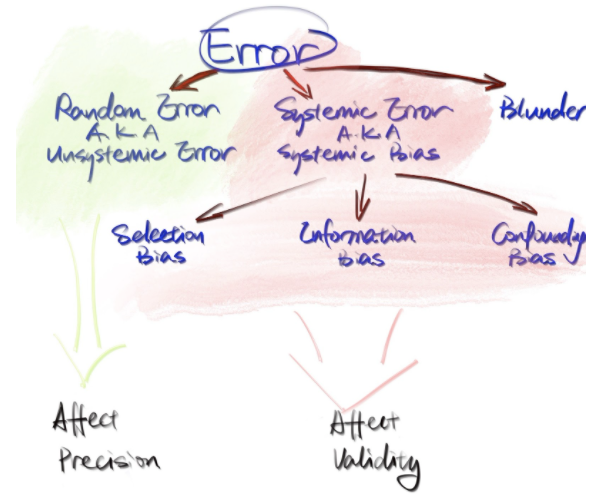 Error
Random Error
A.K.A
Unsystemic Error
Systemic Error
A.K.A
Systemic Bias
Blunder
Selection
Bias
Information
Bias
Confounding
Bias
Affect
Precision
Affect
Validity